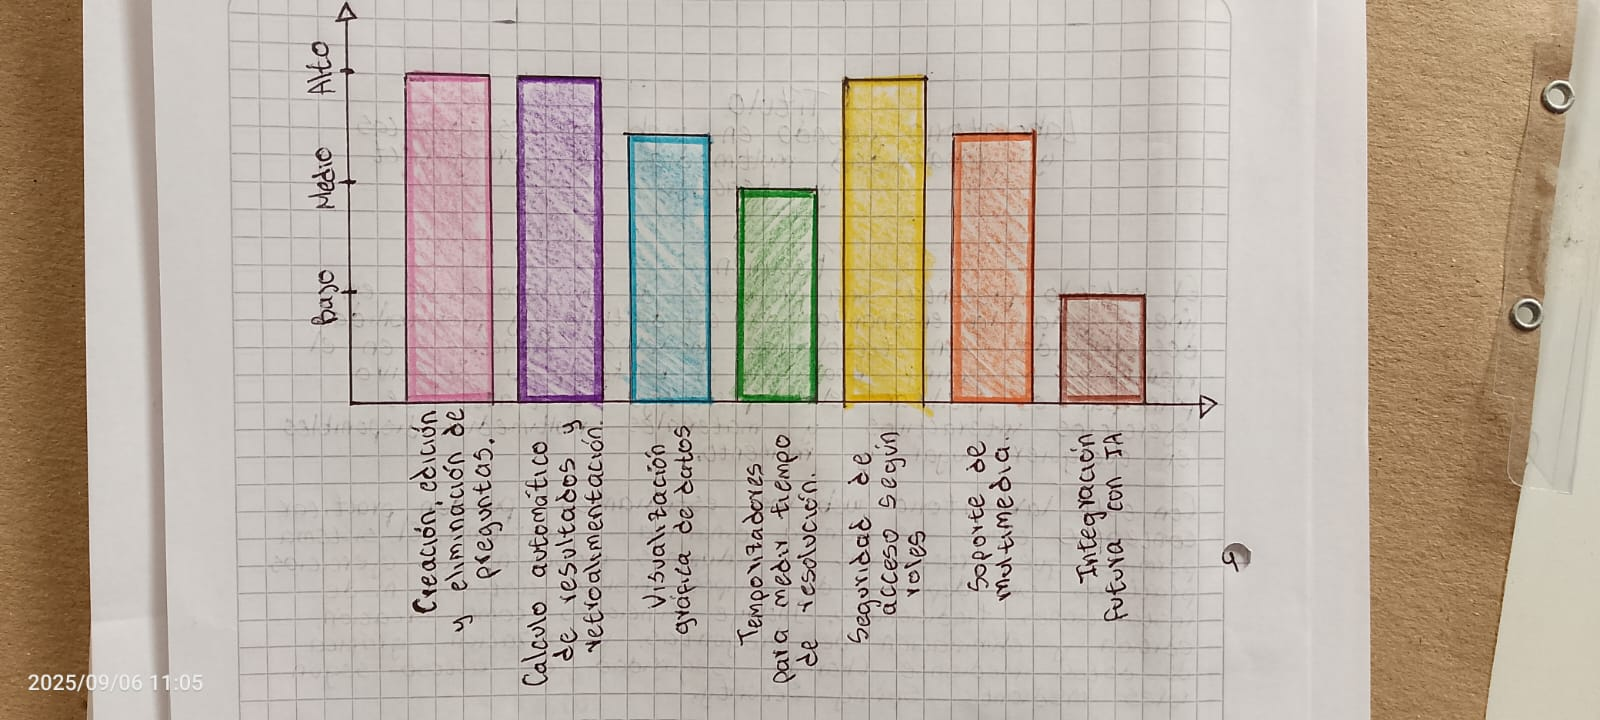 Alto
Medio
Bajo
Creación, edición
y eliminación de
preguntas.
Calculo automático
de resultados y
retroalimentación.
Visualización
gráfica de datos
Temporizadores
para medir tiempo
de resolución.
Seguridad de
acceso según
roles
Soporte de
multimedia.
Integración
futura con IA
2025/09/06 11:05